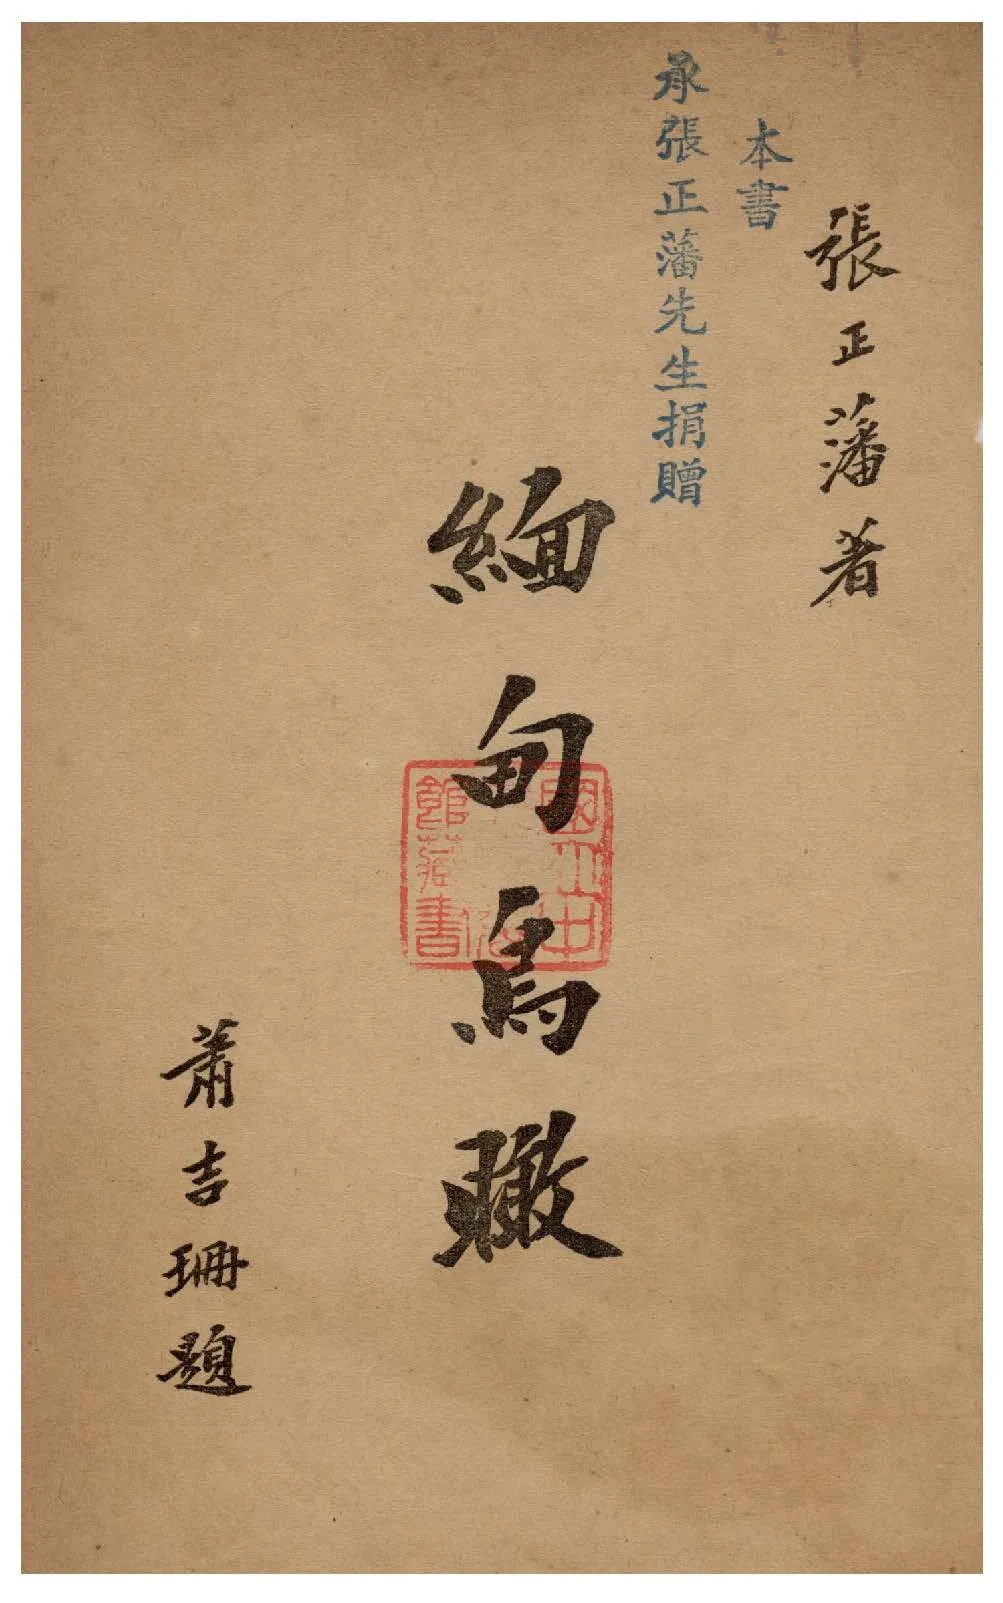 張正藩著
本書
承張正藩先生捐贈
緬甸鳥瞰
國立中
館藏書
蕭吉珊題